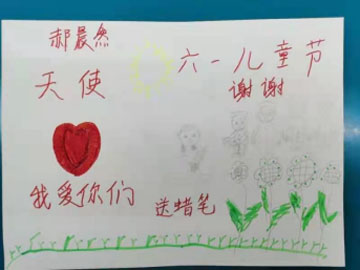 郝晨然
天使
六一儿童节
谢谢
我爱你们
送蜡笔